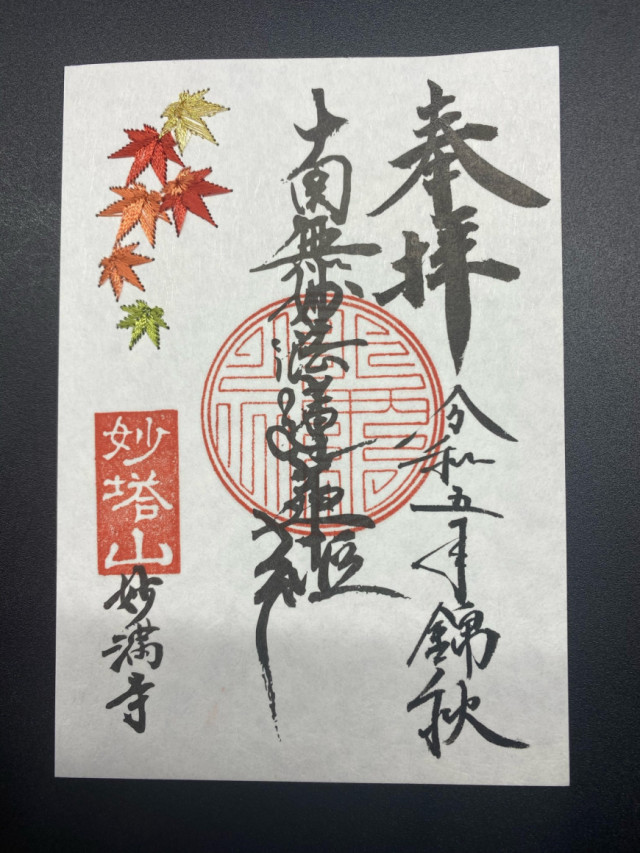 奉拝
令和五年錦秋
南無妙法蓮華経
妙塔山
妙満寺